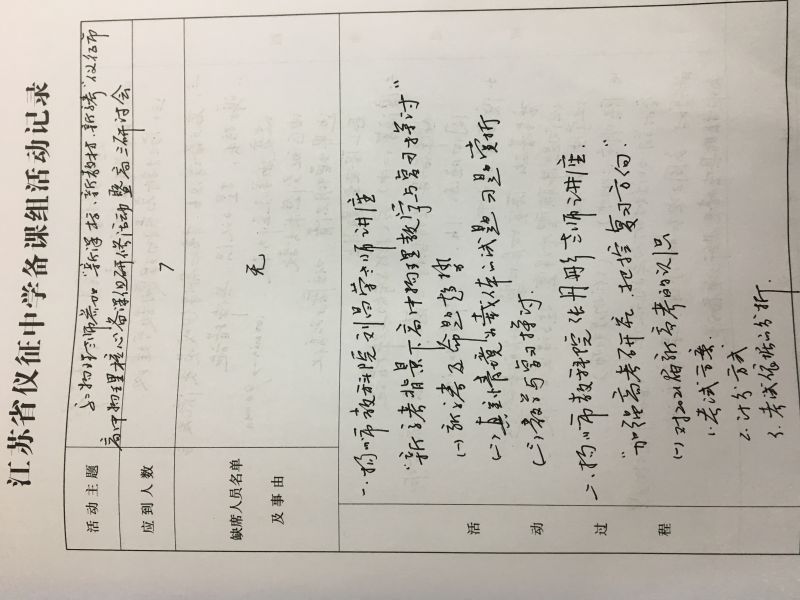 江苏省仪征中学备课组活动记录
活动主题
物理老师参加“新课标、新教材、新高考”仪征市
高中物理核心备课组研修活动暨高三研讨会
应到人数
7
缺席人员名单
及事由
无
活动过程
一、扬州市教科院刘昌荣老师讲座
“新高考背景下高中物理教学与复习探讨”
(一)新高考及命题趋势
(二)真实情境为载体的试题习题赏析
(三)教学与复习探讨.
二、扬州市教科院张丹彤老师讲座.
“加强高考研究,把控复习方向”.
(一)对2021届新高考的认识
1.考试方案.
2.计分方式
3.考试数据的分析.